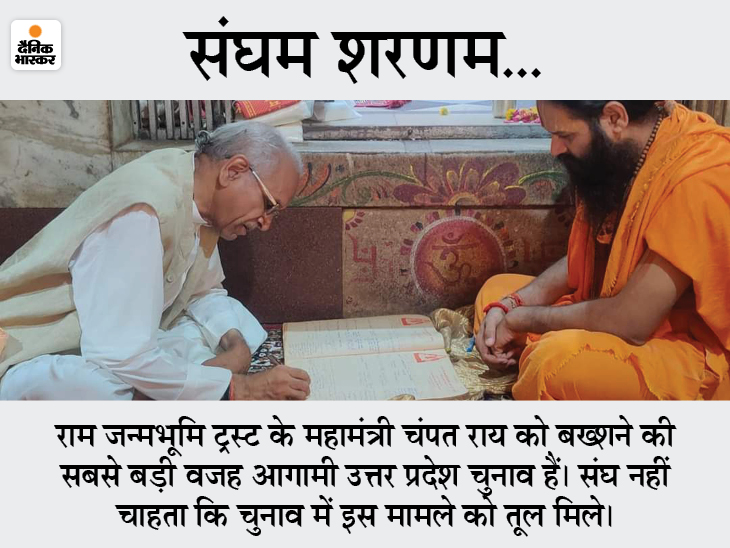 दैनिक
भास्कर
संघम शरणम...
ॐ
राम जन्मभूमि ट्रस्ट के महामंत्री चंपत राय को बख्शने की
सबसे बड़ी वजह आगामी उत्तर प्रदेश चुनाव हैं। संघ नहीं
चाहता कि चुनाव में इस मामले को तूल मिले।